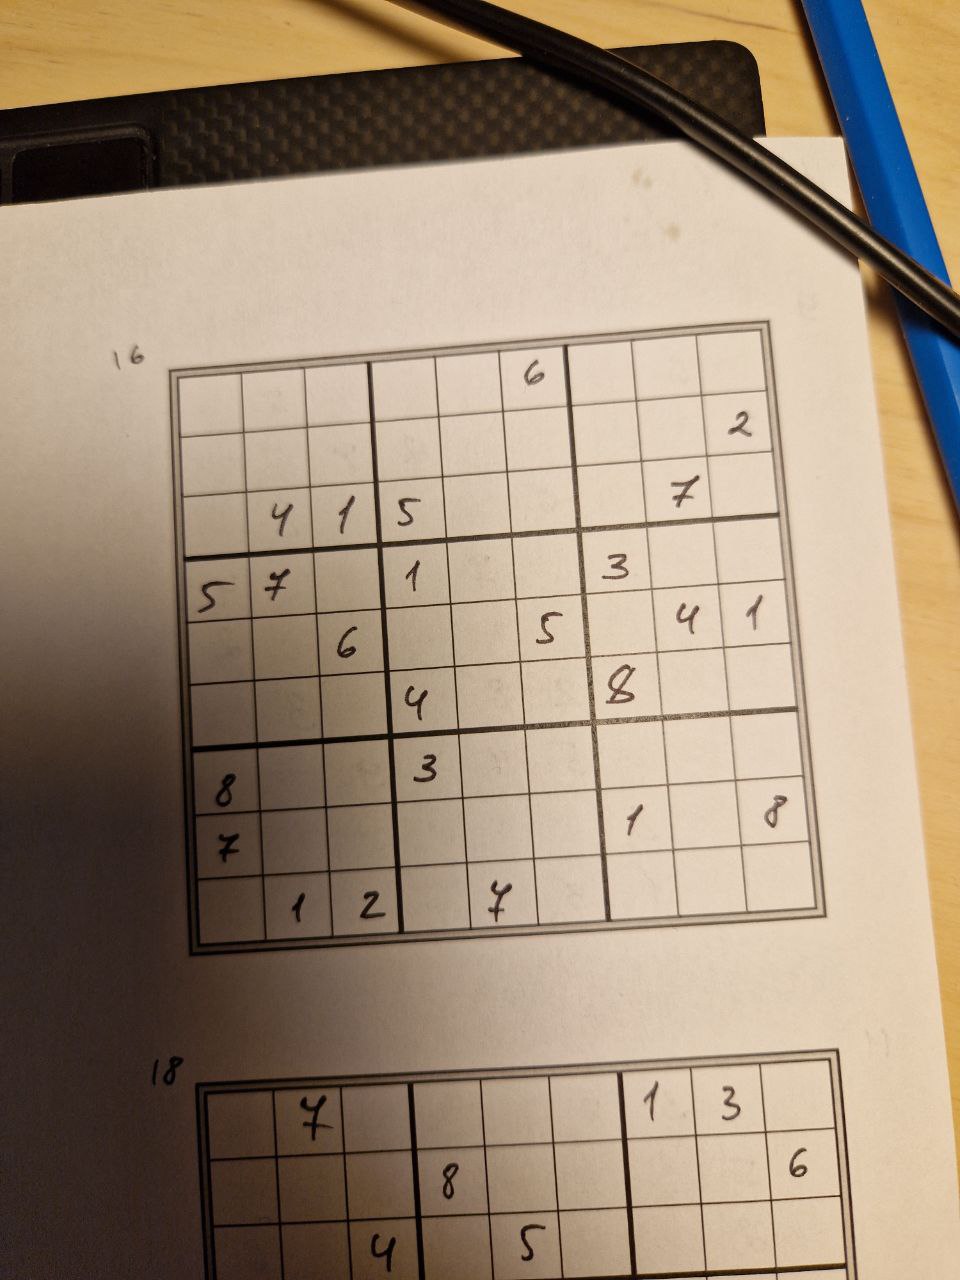 16
6
2
4 1 5 7
5 7 1 3
6 5 4 1
4 8
8 3
7 1 8
1 2 7
18
7 1 3
8 6
4 5